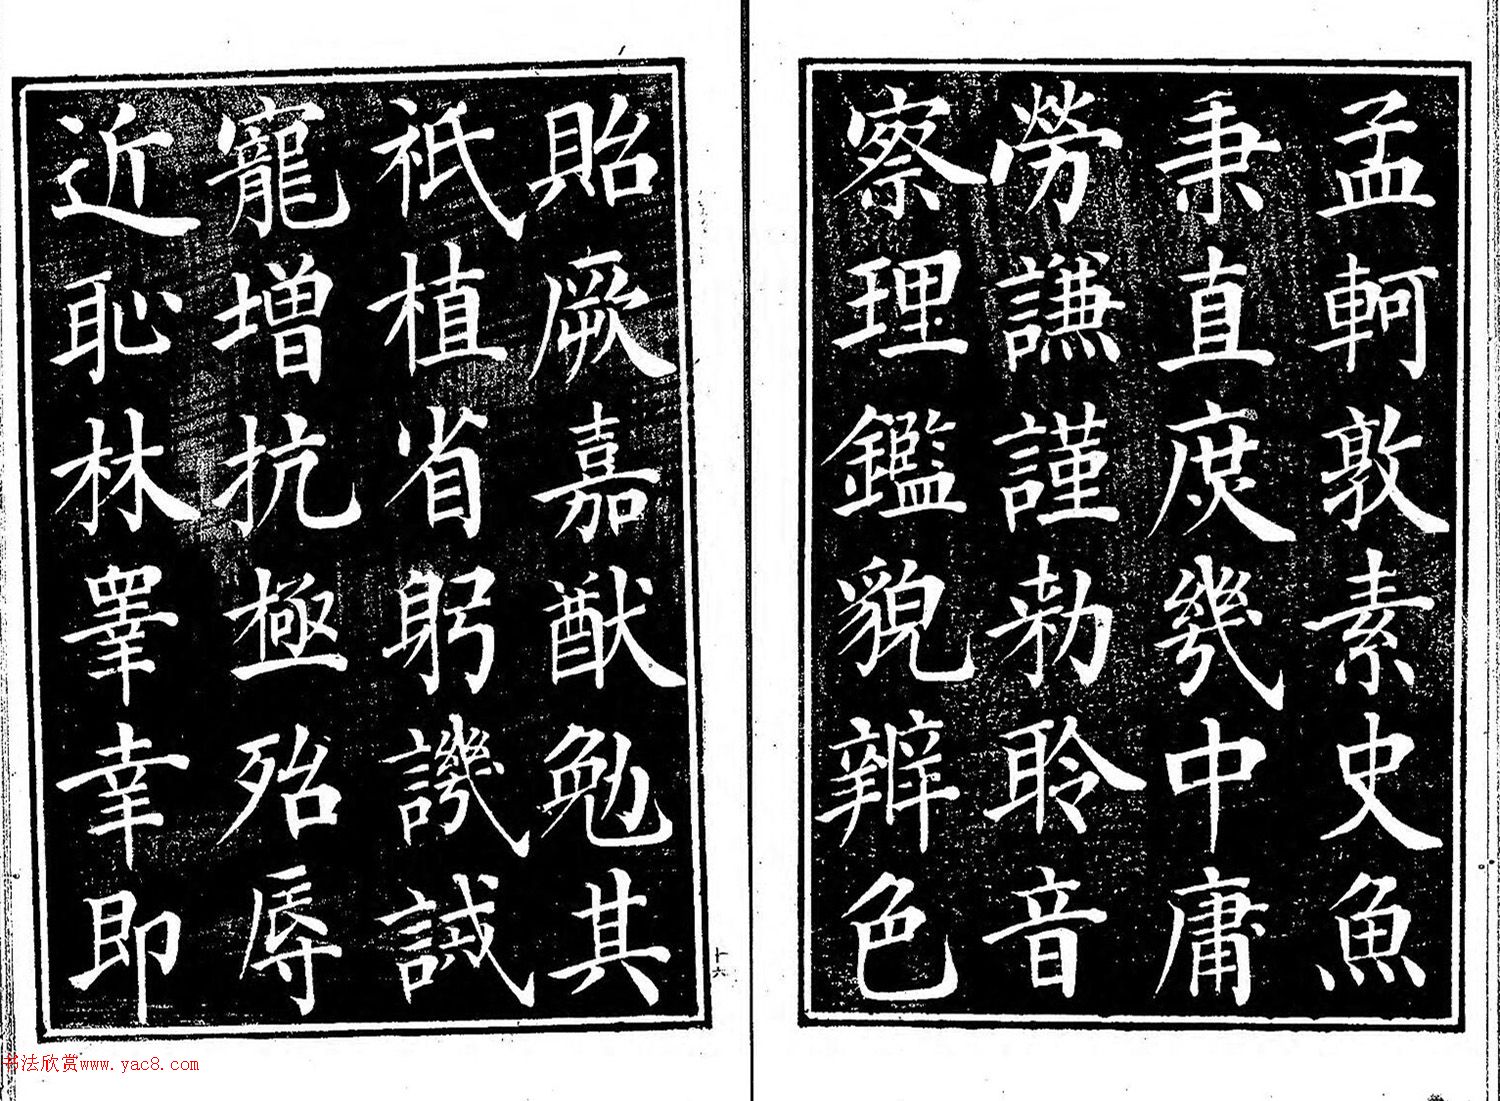 孟軻敦素史魚
秉直庶幾中庸
勞謙謹勅聆音
察理鑑貌辨色
貽厥嘉猷勉其
祇植省躬譏誡
寵增抗極殆辱
近恥林睪幸即
十六
书法欣赏www.yac8.com